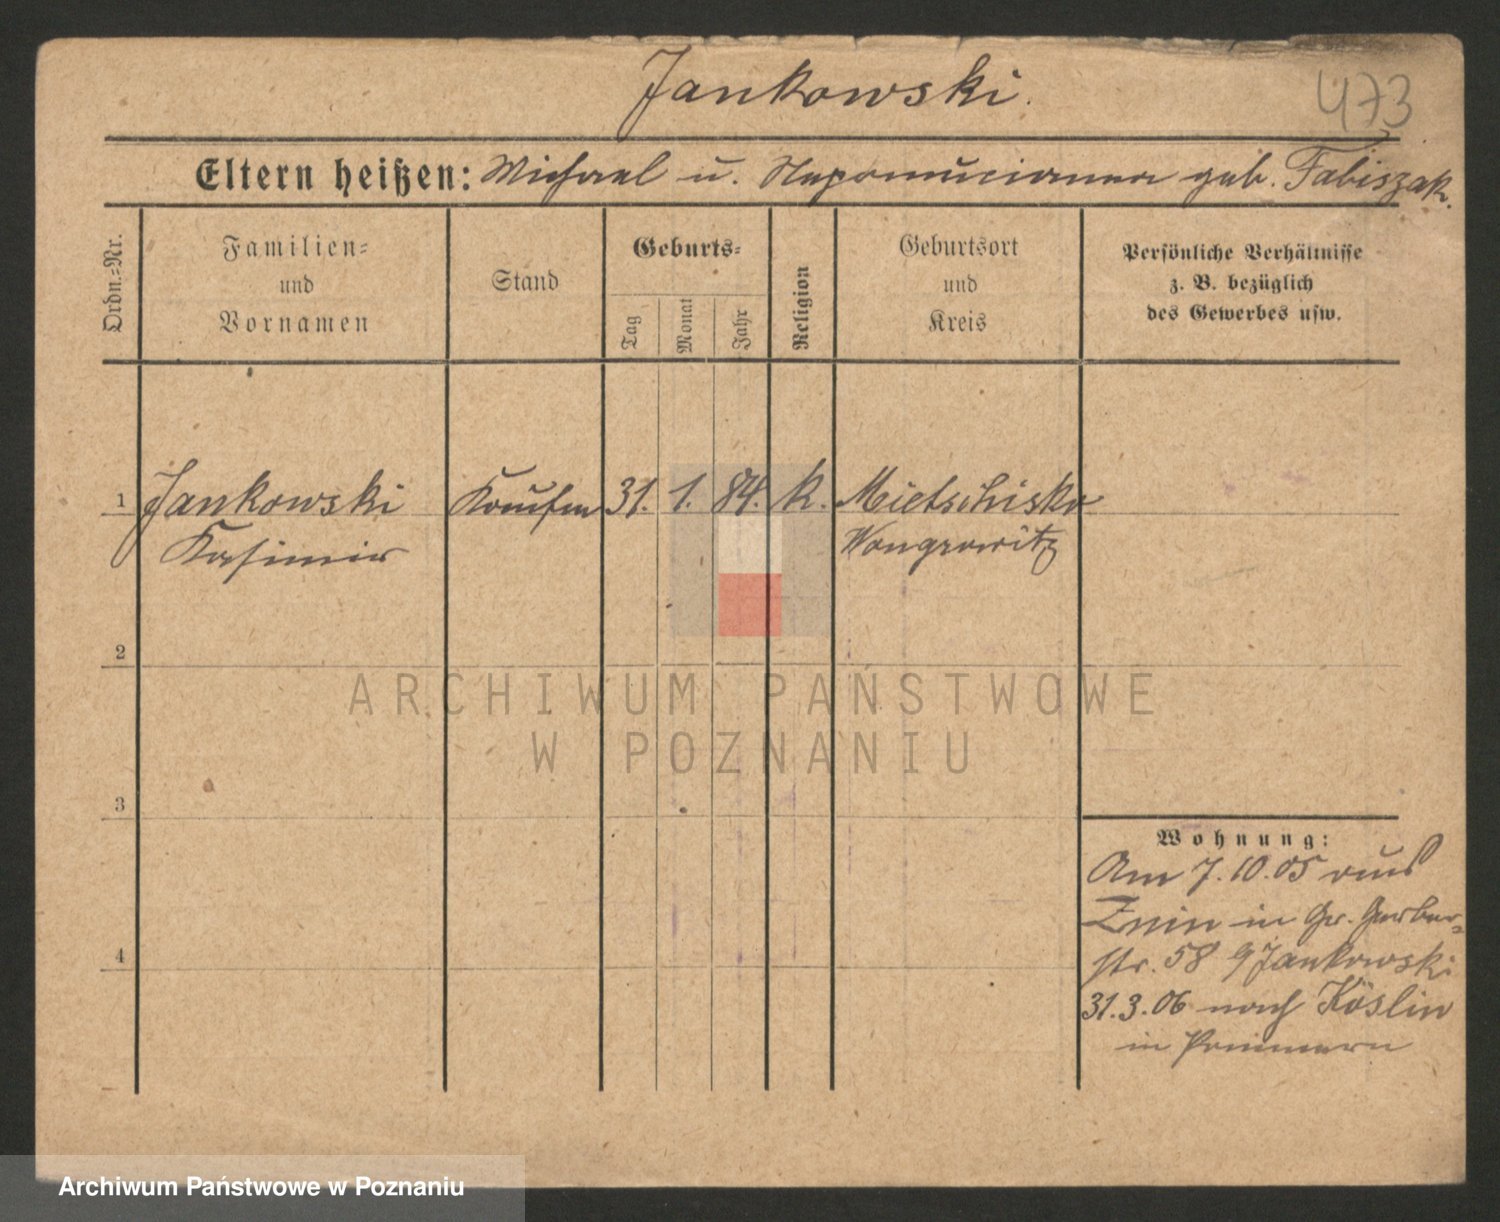 Jankowski.
473
Eltern heißen: Michael u. Nepomuciana geb. Fabiszak.
Ordn.=Nr.
Familien=
und
Vornamen
Stand
Geburts=
Tag
Monat
Jahr
Religion
Geburtsort
und
Kreis
Persönliche Verhältnisse
z. B. bezüglich
des Gewerbes usw.
1 Jankowski Kaufm 31. 1. 84. k. Mietschisko
Kasimir Wongrowitz
2
3
4
Wohnung:
Am 7.10.05 aus
Znin in Gr. Gerber-
str. 58 Jankowski
31.3.06 nach Köslin
in Pommern
ARCHIWUM PAŃSTWOWE
W POZNANIU
Archiwum Państwowe w Poznaniu